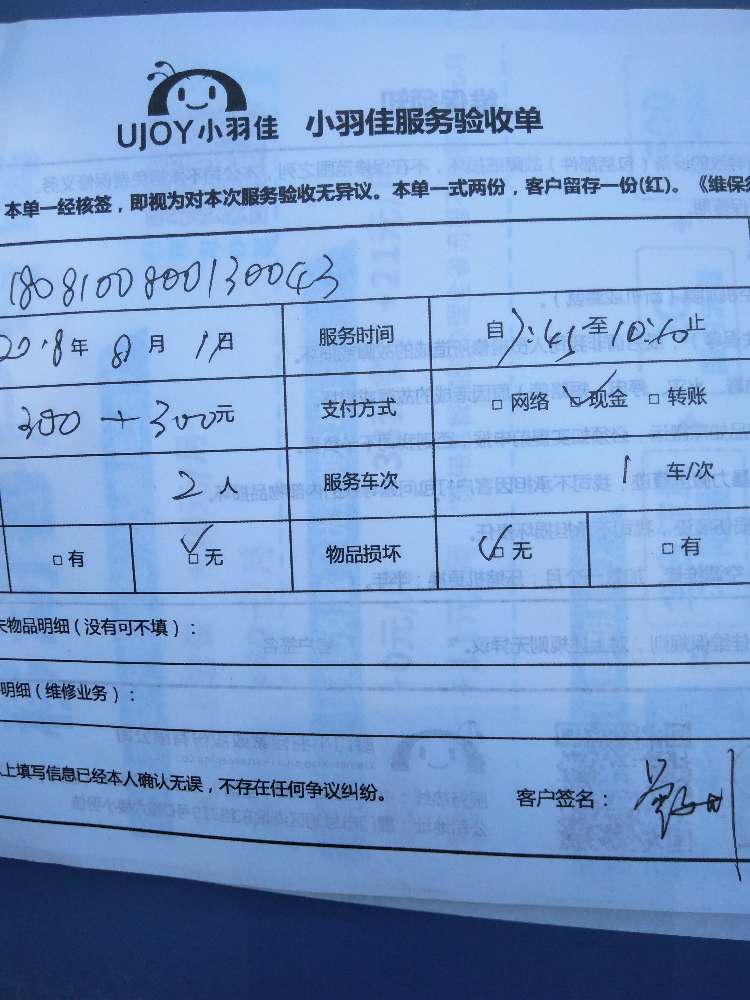 UJOY小羽佳 小羽佳服务验收单
本单一经核签，即视为对本次服务验收无异议。本单一式两份，客户留存一份(红)。《维保
1808100800130043
2018年 8月 1日 服务时间 自7:45至10:10止
300+300元 支付方式 □ 网络 □ 现金 □ 转账
2人 服务车次 1 车/次
□ 有 □ 无 物品损坏 □ 无 □ 有
物品明细（没有可不填）：
明细（维修业务）：
上填写信息已经本人确认无误，不存在任何争议纠纷。 客户签名：